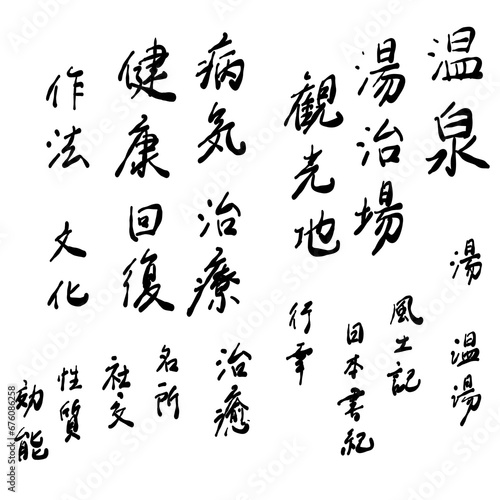 温泉
湯 温湯
湯治場
風土記
観光地
日本書紀
行幸
病気 治療
治癒
健康回復
名所
社交
作法 文化
性質
効能
Adobe Stock | #676086258